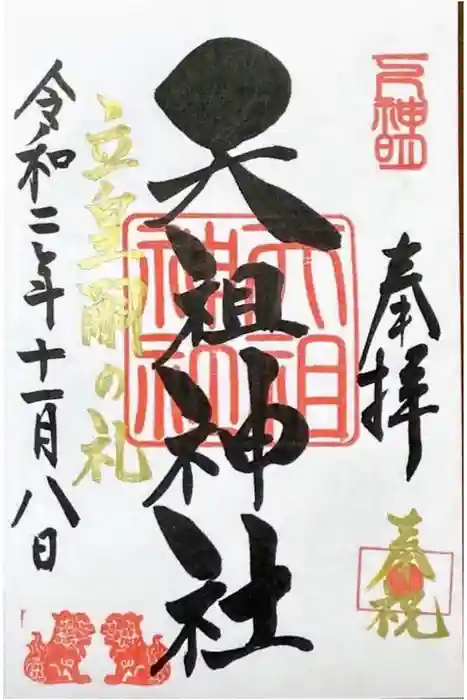 元神明
奉拝
奉祝
天祖神社
天祖神社
立皇嗣の礼
令和二年十一月八日